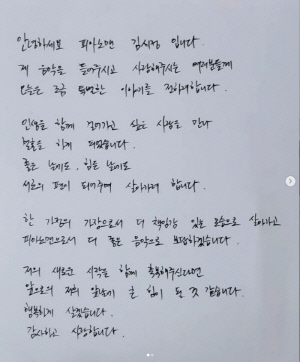 안녕하세요 피아노맨 김세정 입니다.
제 음악을 들어주시고 사랑해주시는 여러분들께
오늘은 조금 특별한 이야기를 전하려합니다.
인생을 함께 걸어가고 싶은 사람을 만나
결혼을 하게 되었습니다.
좋은 날에도, 힘든 날에도
서로의 편이 되어주며 살아가려 합니다.
한 가정의 가장으로서 더 책임감 있는 모습으로 살아가고
피아노맨으로서 더 좋은 음악으로 보답하겠습니다.
저의 새로운 시작을 함께 축복해주신다면
앞으로의 저희 앞날에 큰 힘이 될 것 같습니다.
행복하게 살겠습니다.
감사하고 사랑합니다.